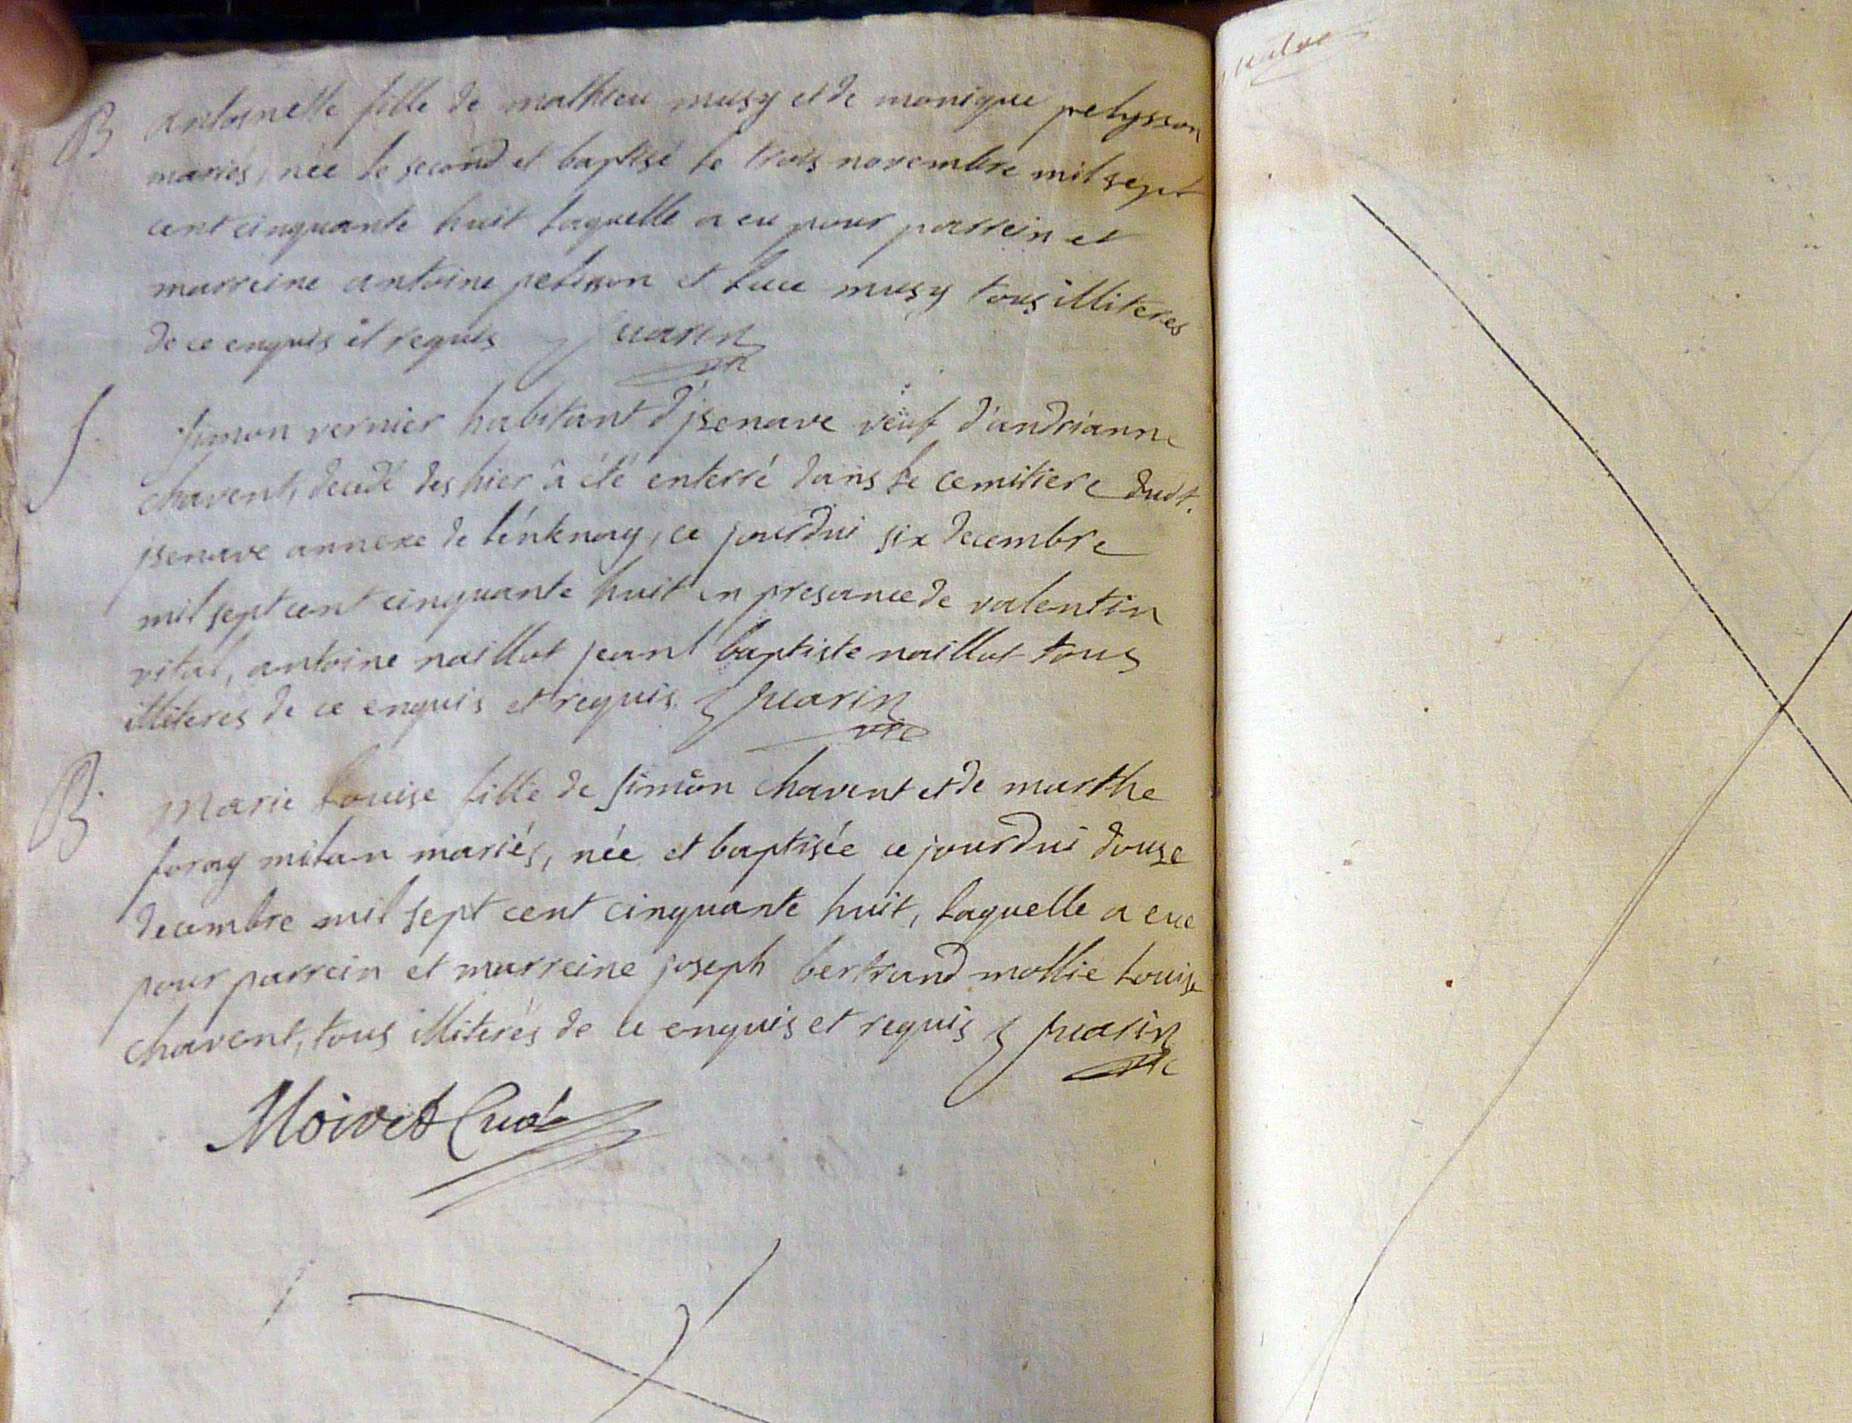 B antoinette fille de mathieu musy et de monique pelysson
mariés, née le second et baptisé le trois novembre mil sept
cent cinquante huit laquelle a eu pour parrein et
marreine antoine pelisson et luce musy tous illiteres
de ce enquis et requis Juarin
vic
S. Simon vernier habitant d'jsenave veuf d'andrianne
chavent, decedé des hier â été enterré dans le cemitiere dudt.
jsenave annexe de lénknay, ce jourdui six decembre
mil sept cent cinquante huit en presance de valentin
vital, antoine naillot jean baptiste naillot tous
illiterés de ce enquis et requis Juarin
vic
B. Marie Louise fille de Simon chavent et de marthe
foray milan mariés, née et baptisée ce jourdui douse
decembre mil sept cent cinquante huit, laquelle a eue
pour parrein et marreine joseph bertrand mollie Louise
chavent, tous illiterés de ce enquis et requis Juarin
vic
Moivet Curé